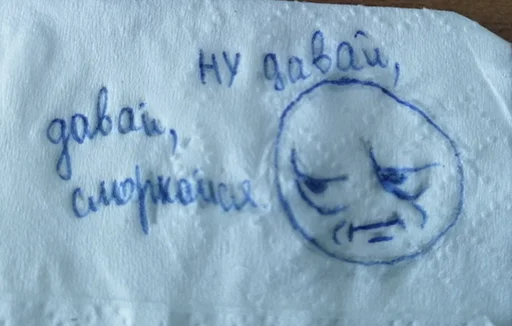 ну давай,
давай,
сморкайся